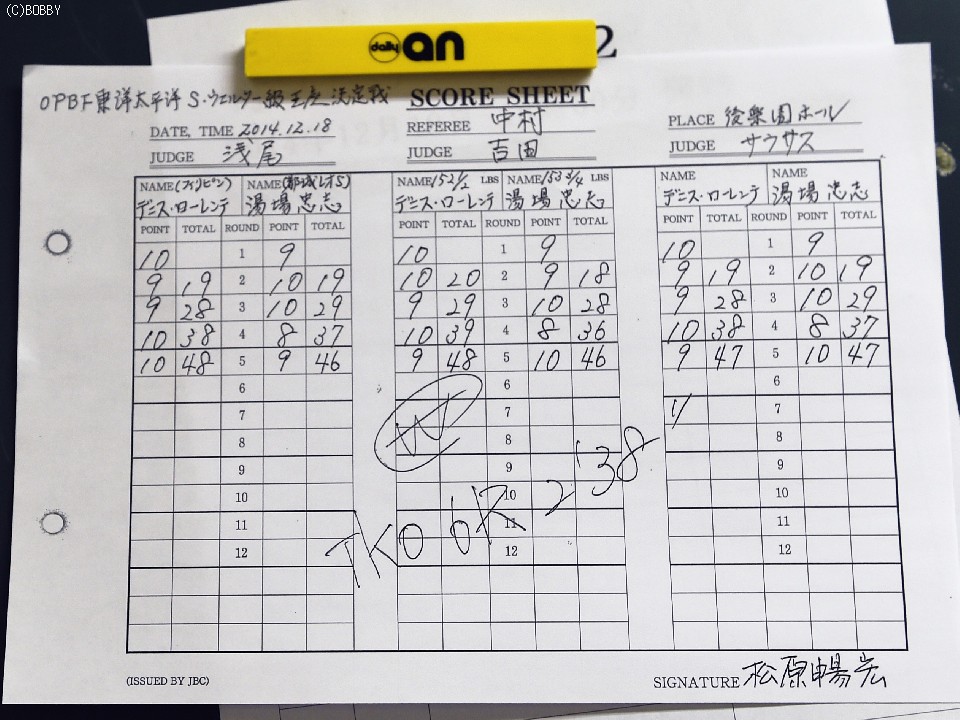 (C)BOBBY
daily an
2
OPBF東洋太平洋S.ウェルター級王座決定戦 SCORE SHEET
DATE, TIME 2014.12.18 REFEREE 中村 PLACE 後楽園ホール
JUDGE 浅尾 JUDGE 吉田 JUDGE サウサス
NAME(フィリピン) NAME(都城レオS) NAME 152 1/2 LBS NAME 153 3/4 LBS NAME NAME
デニス・ローレンテ 湯場忠志 デニス・ローレンテ 湯場忠志 デニス・ローレンテ 湯場忠志
POINT TOTAL ROUND POINT TOTAL POINT TOTAL ROUND POINT TOTAL POINT TOTAL ROUND POINT TOTAL
10 1 9 10 1 9 10 1 9
9 19 2 10 19 10 20 2 9 18 9 19 2 10 19
9 28 3 10 29 9 29 3 10 28 9 28 3 10 29
10 38 4 8 37 10 39 4 8 36 10 38 4 8 37
10 48 5 9 46 9 48 5 10 46 9 47 5 10 47
6 6 6
7 W 7 7
8 8 8
9 9 9
10 10 10
11 11 11
12 12 12
TKO 6R 2'38
(ISSUED BY JBC) SIGNATURE 松原暢宏